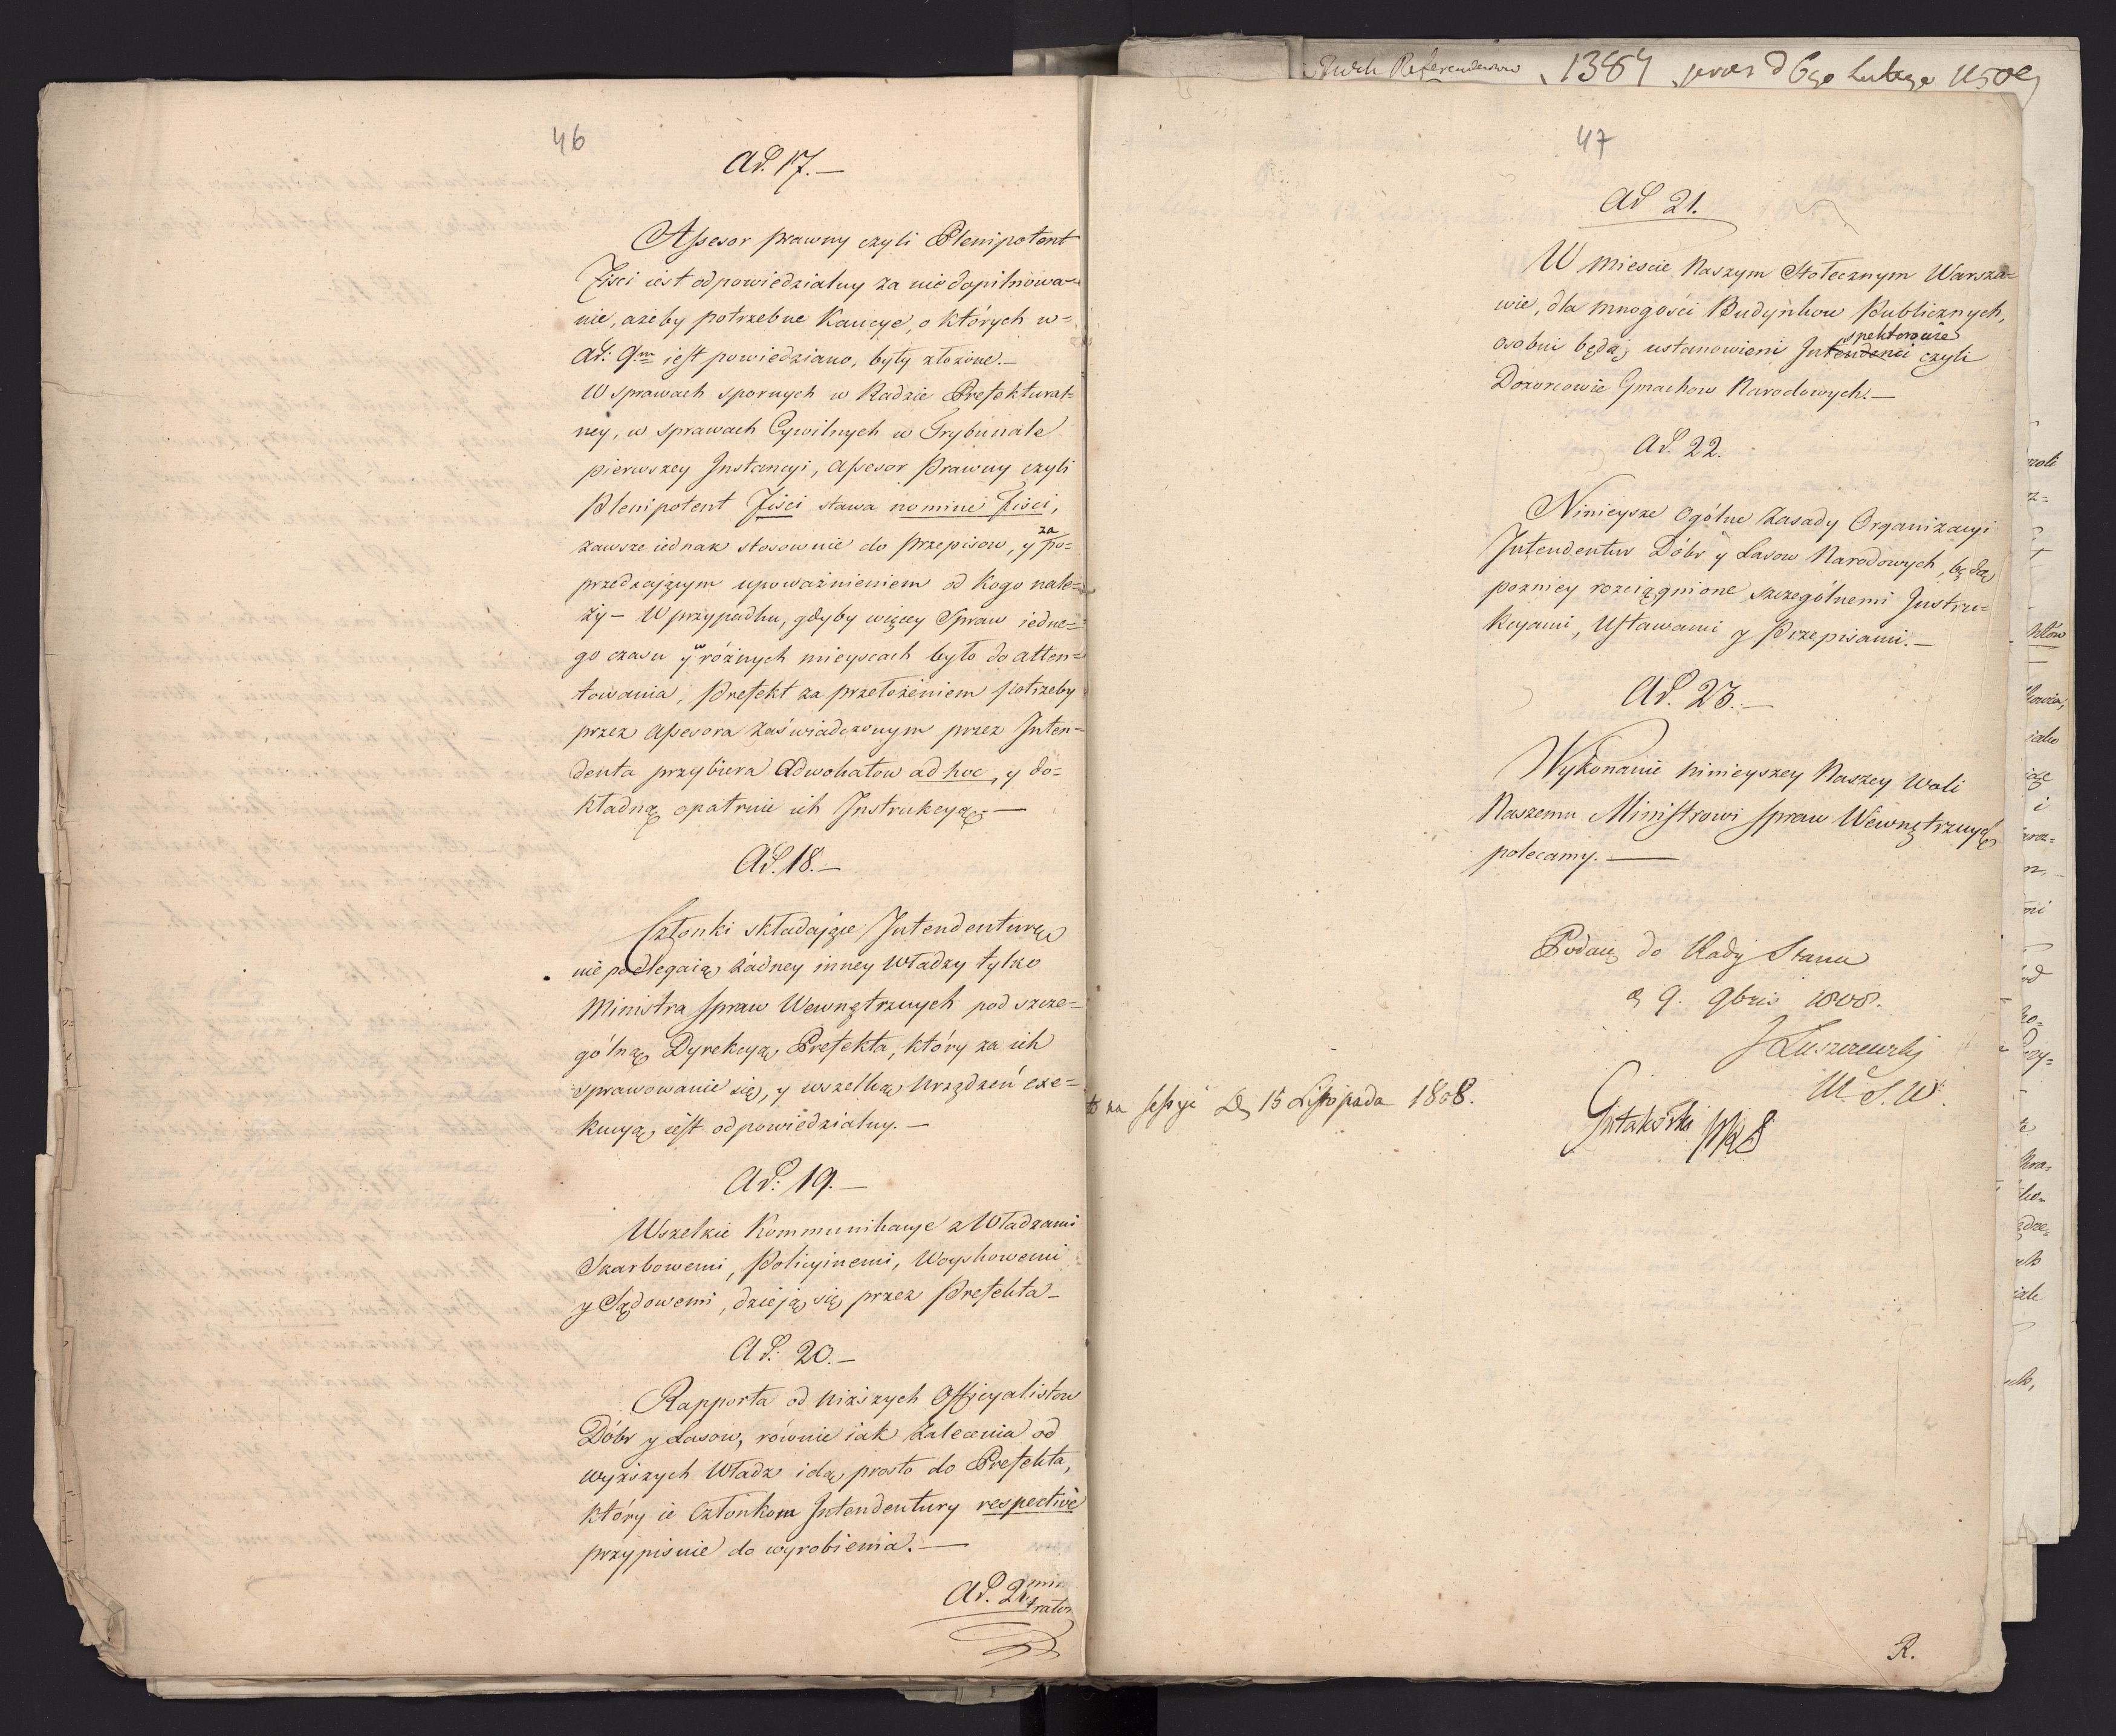 46
Ad. 17.—
Assesor prawny czyli Plenipotent
Fisci iest odpowiedzialny za niedopilnowa-
nie, ażeby potrzebne Kaucye, o których w=
Ad: 9.m iest powiedziano, były złożone.—
W sprawach spornych w Radzie Prefektural=
ney, w sprawach Cywilnych w Trybunale
pierwszey Instancyi, Assesor Prawny czyli
Plenipotent Fisci stawa nomine Fisci,
zawsze iednak stosownie do przepisow, y za po=
przedzaiącym upoważnieniem od kogo nale=
ży— W przypadku, gdyby więcey Spraw iedne=
go czasu y w różnych mieyscach było do atten=
towania, Prefekt za przełożeniem potrzeby
przez Assesora zaświadczonym przez Inten=
denta przybiera Adwokatow ad hoc, y do=
kładną opatruie ich Instrukcyą.—
Ad. 18.—
Członki składaiące Intendenturę
nie podlegaią żadney inney władzy tylko
Ministra spraw Wewnętrznych pod szcze=
gólną Dyrekcyą Prefekta, który za ich
sprawowanie się, y wszelką urządzeń exe=
kucyą iest odpowiedzialny.—
Ad: 19.—
Wszelkie Kommunikacye z Władzami
Skarbowemi, Policyinemi, Woyskowemi
y Sądowemi, dzieją się przez Prefekta—
Ad: 20.—
Rapporta od niższych Officyalistow
Dóbr y Lasow, równie iak zalecenia od
wyższych Władz idą prosto do Prefekta,
który ie Członkom Intendentury respective
przypisuie do wyrobienia.—
Ad. 21
Referendarzow 1384 przez d 6go Lutego
47
Ad 21.
W mieście Naszym Stołecznym Warsza=
wie, dla mnogości Budynkow Publicznych,
spektorowie
osobni będą ustanowieni Intendenci czyli
Dozorcowie Gmachow Narodowych.—
Ad. 22.
Ninieysze Ogólne Zasady Organizacyi
Intendentur Dóbr y Lasow Narodowych, będą
pozniey rozciągnione szczególnemi Instru=
kcyami, Ustawami y Przepisami.—
Ad. 23.—
Wykonanie ninieyszey Naszey Woli
Naszemu Ministrowi spraw Wewnętrznych
polecamy.—
Podany do Rady Stanu
d 9. 9bris 1808.
J Łuszczewski
M. S. W.
na sessyi D. 15 Listopada 1808.
Gutakowski PRS
R.